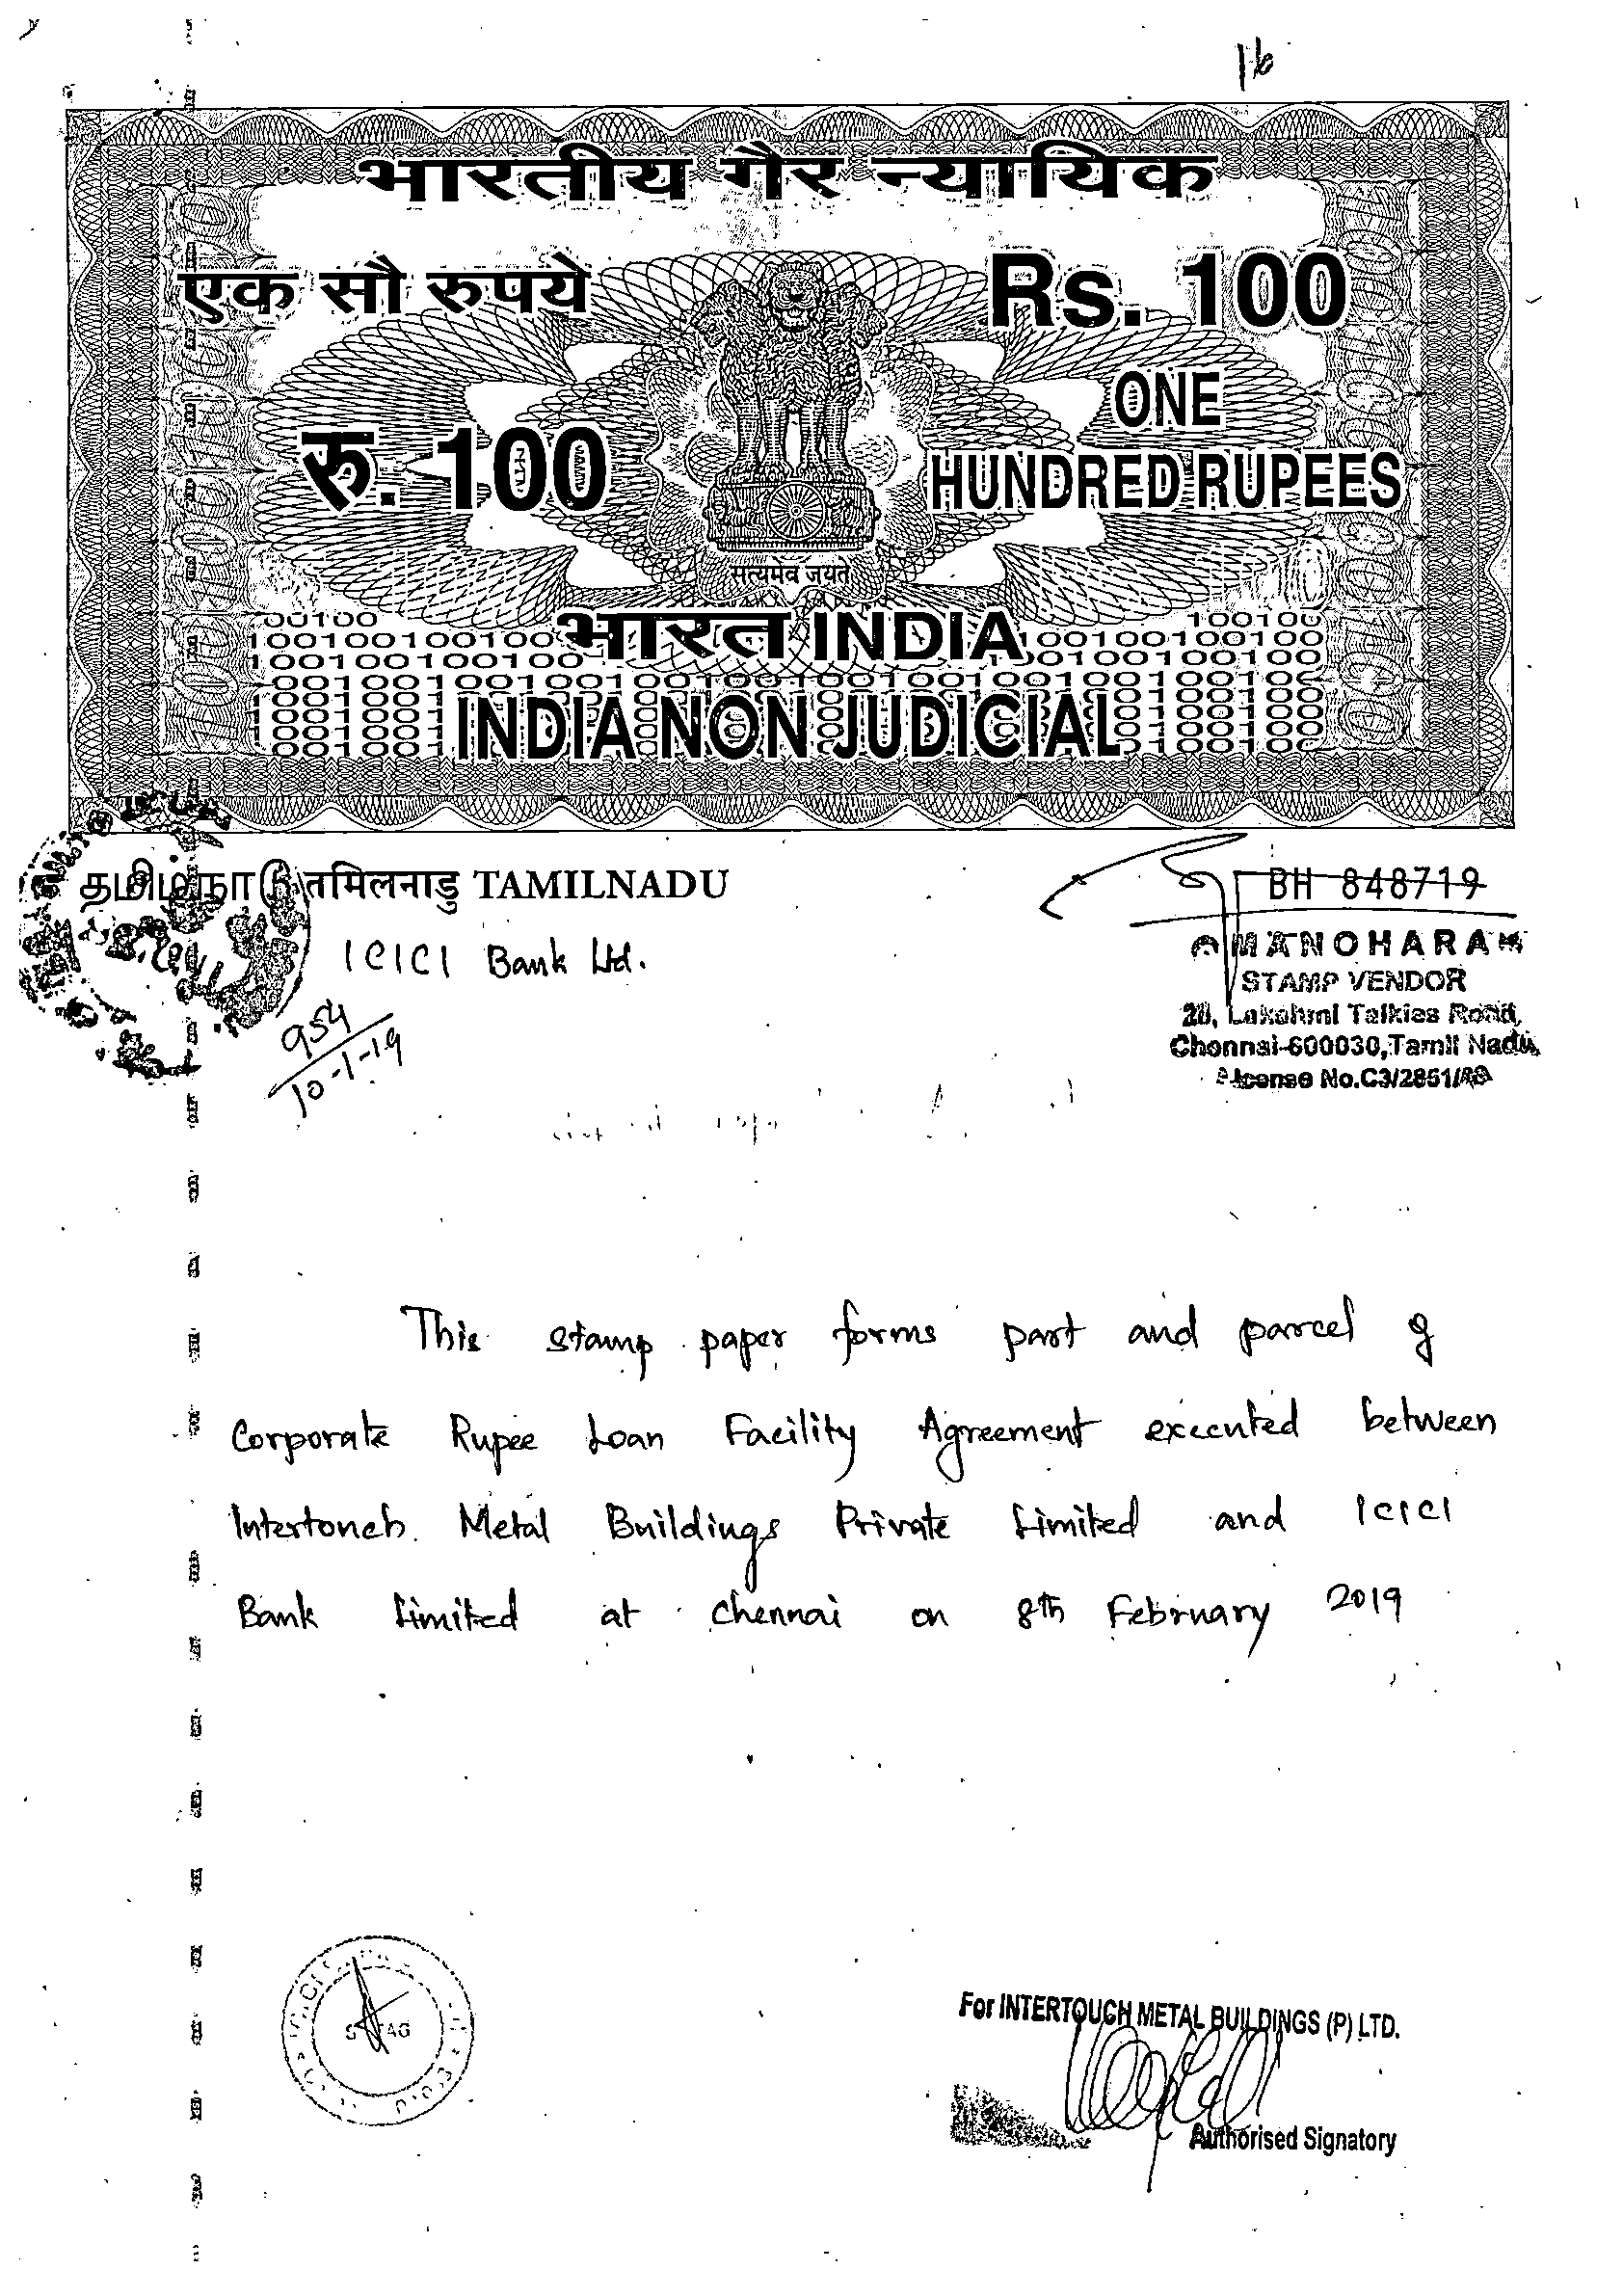 16
भारतीय गैर न्यायिक
एक सौ रुपये
Rs. 100
रु. 100
ONE
HUNDRED RUPEES
सत्यमेव जयते
भारत INDIA
INDIA NON JUDICIAL
தமிழ்நாடு तमिलनाडु TAMILNADU
BH 848719
ICICI Bank Ltd.
954
10-1-19
MANOHARAN
STAMP VENDOR
20, Lakshmi Talkies Road,
Chennai-600030, Tamil Nadu
License No.C3/2851/
This stamp paper forms part and parcel of
Corporate Rupee Loan Facility Agreement executed between
Intertouch Metal Buildings Private Limited and ICICI
Bank Limited at Chennai on 8th February 2019
For INTERTOUCH METAL BUILDINGS (P) LTD.
Authorised Signatory